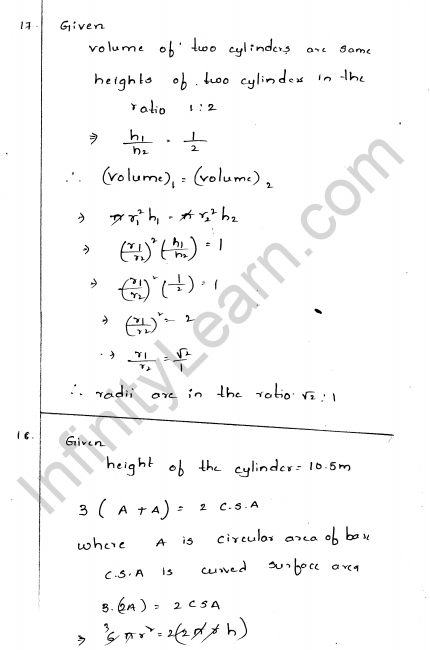 17. Given
volume of two cylinders are same
heights of two cylinders in the
ratio 1:2
⇒ h₁/h₂ = 1/2
∴ (volume)₁ = (volume)₂
⇒ π r₁² h₁ = π r₂² h₂
⇒ (r₁/r₂)² (h₁/h₂) = 1
⇒ (r₁/r₂)² (1/2) = 1
⇒ (r₁/r₂)² = 2
⇒ r₁/r₂ = √2/1
∴ radii are in the ratio √2 : 1
16. Given
height of the cylinder = 10.5m
3 (A + A) = 2 C.S.A
where A is circular area of base
C.S.A is curved surface area
3.(2A) = 2 CSA
⇒ 6 3 π r² = 2(2πrh)
InfinityLearn.com